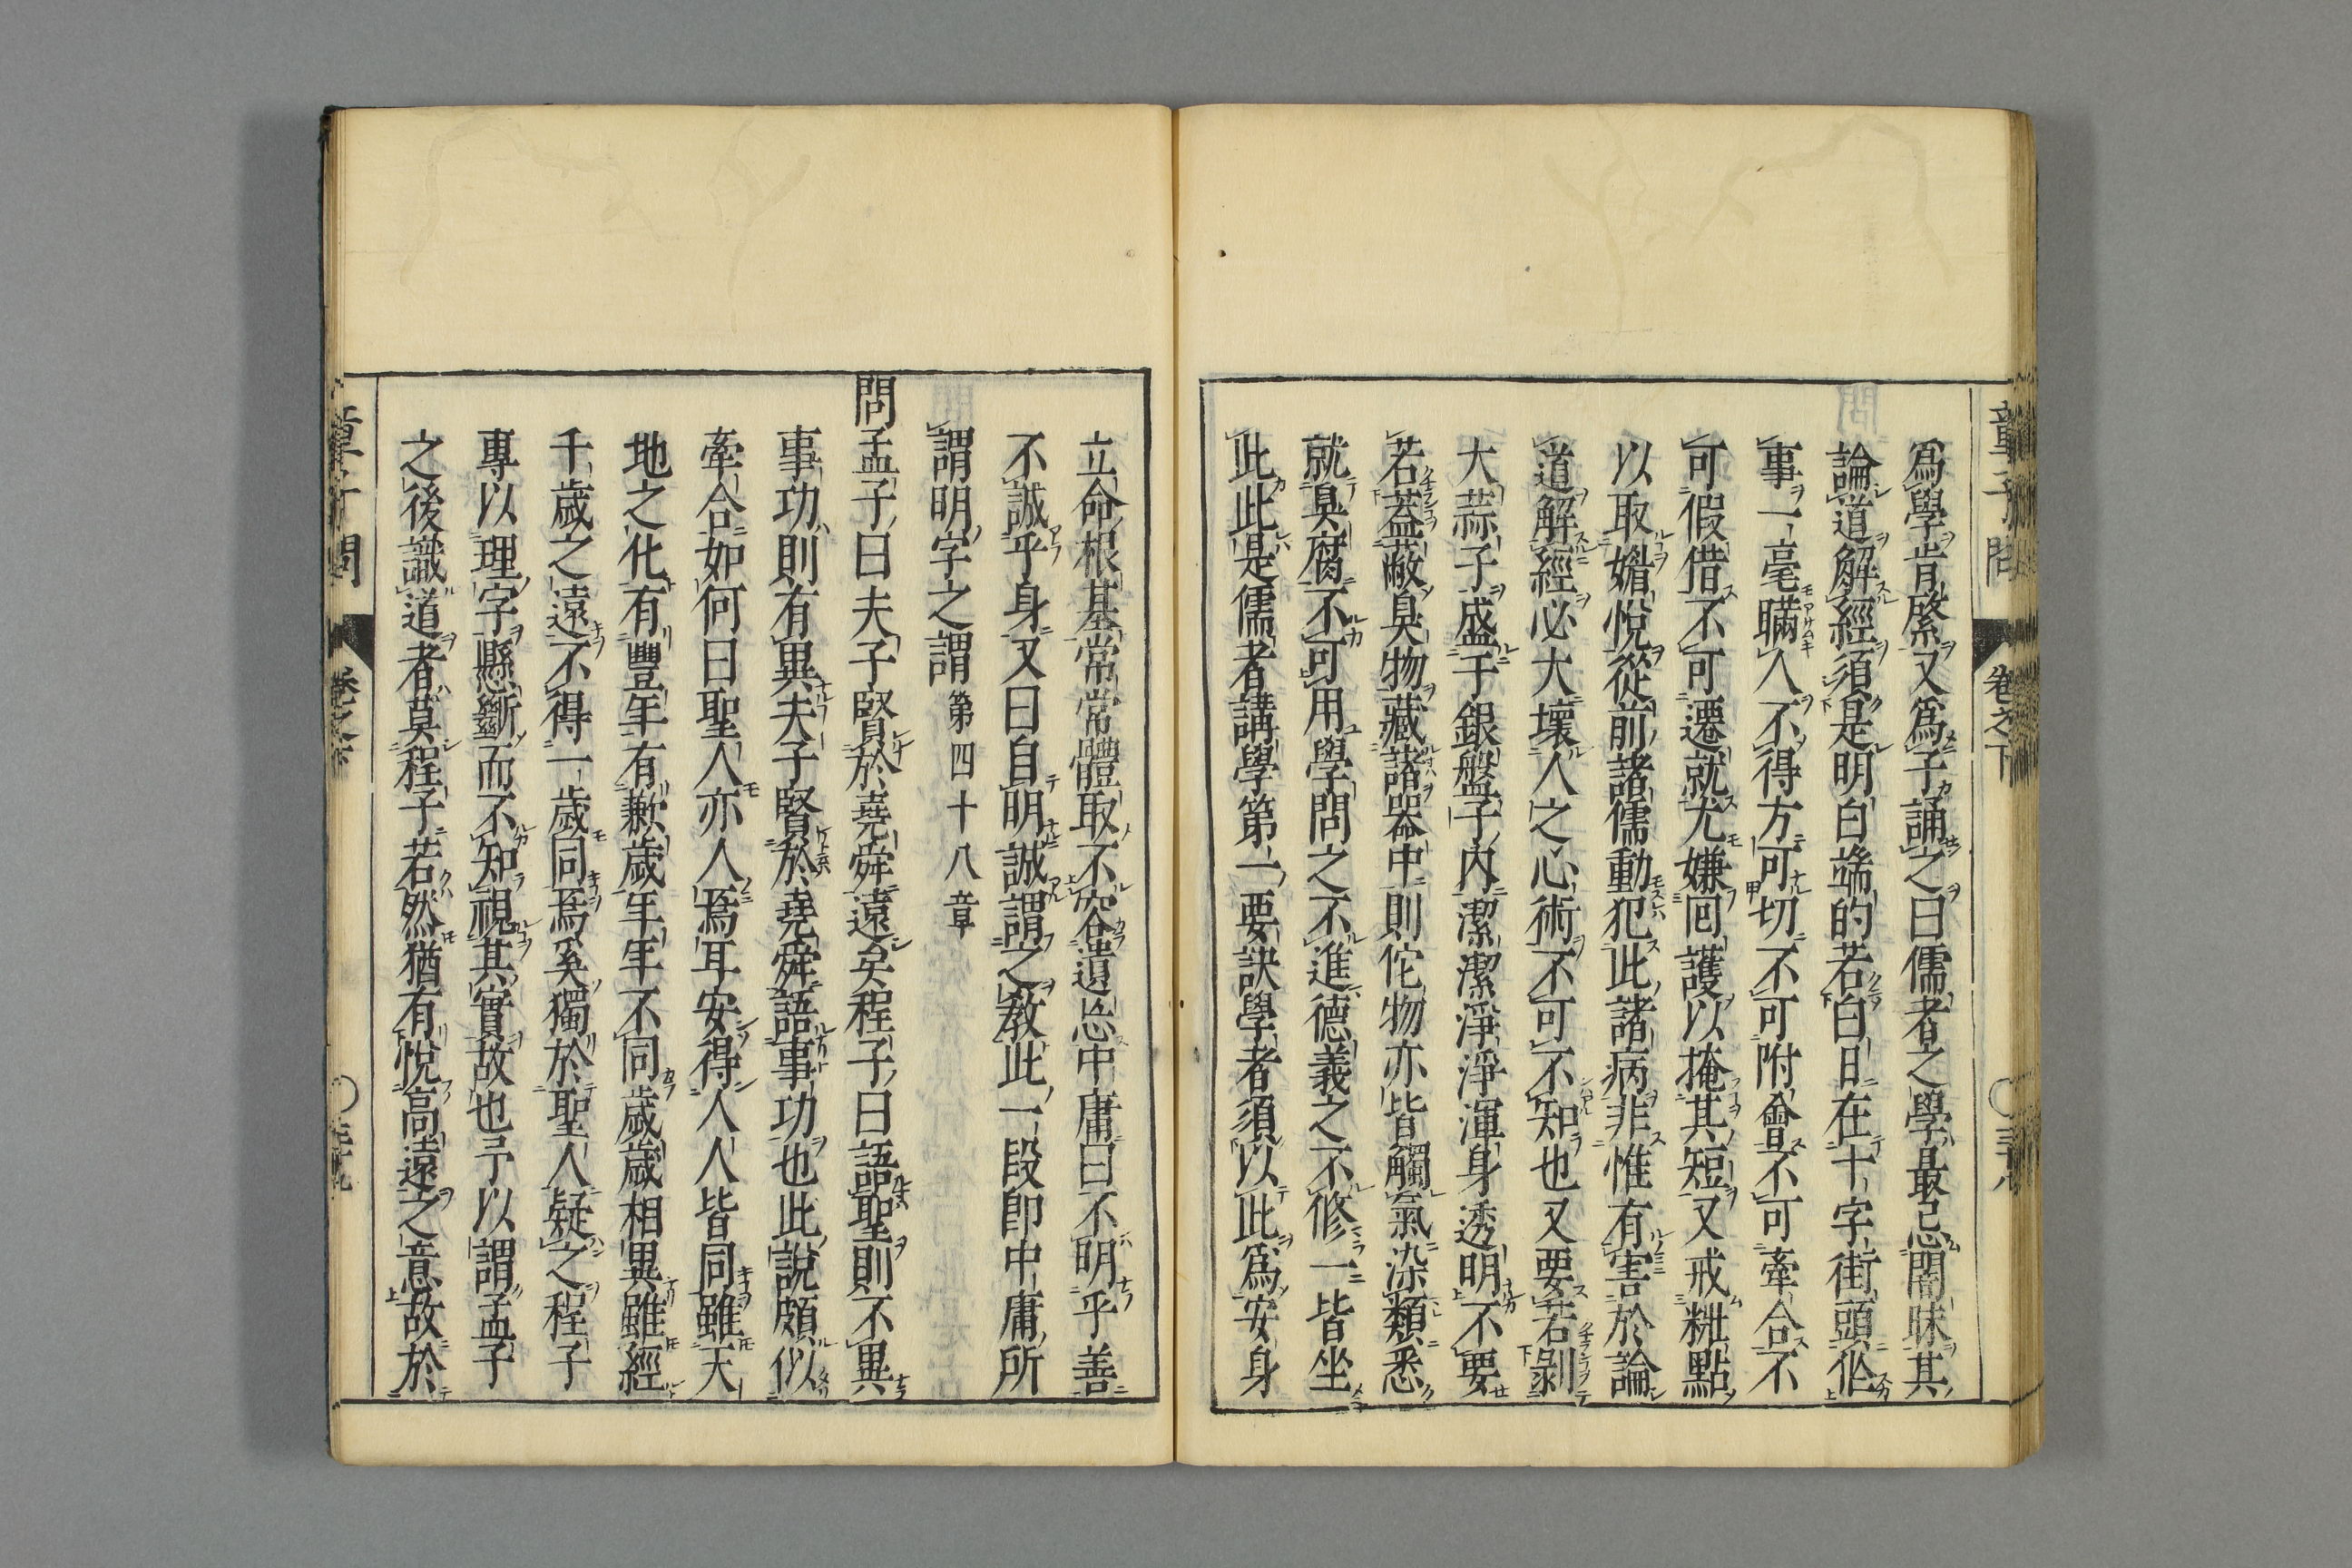 童子問 卷之下 〇三十八
爲學肯綮又爲子誦之曰儒者之學最忌闇昧其
論道解經須是明白端的若白日在十字街頭作
事一毫瞞人不得方可切不可附會不可牽合不
可假借不可遷就尤嫌回護以掩其短又戒粧點
以取媚悅從前諸儒動犯此諸病非惟有害於論
道解經必大壞人之心術不可不知也又要若剝
大蒜子盛于銀盤子內潔潔淨淨渾身透明不要
若蓋蔽臭物藏諸器中則佗物亦皆觸氣染類悉
就臭腐不可用學問之不進德義之不修一皆坐
此此是儒者講學第一要訣學者須以此爲安身
立命根基常常體取不容遺忘中庸曰不明乎善
不誠乎身又曰自明誠謂之教此一段卽中庸所
謂明字之謂 第四十八章
問孟子曰夫子賢於堯舜遠矣程子曰語聖則不異
事功則有異夫子賢於堯舜語事功也此說頗似
牽合如何曰聖人亦人焉耳安得人人皆同雖天
地之化有豐年有歉歲年年不同歲歲相異雖經
千歲之遠不得一歲同焉奚獨於聖人疑之程子
專以理字懸斷而不知視其實故也予以謂孟子
之後識道者莫程子若然猶有悅高遠之意故於
童子問 卷之下 〇三十九